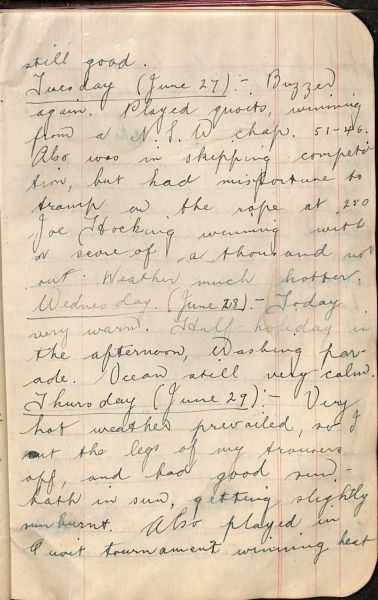 still good.
Tuesday (June 27):- Buzzed
again. Played quoits, winning
from a N.S.W chap. 51-46.
Also was in skipping competi
tion, but had misfortune to
tramp on the rope at 280
Joe Hocking winning with
a score of a thousand not
out. Weather much hotter.
Wednesday. (June 28):- Today
very warm. Half holiday in
the afternoon, Washing par-
ade. Ocean still very calm.
Thursday (June 29):- Very
hot weather prevailed, so I
cut the legs of my trousers
off, and had good sun-
bath in sun, getting slightly
sunburnt. Also played in
Quoit tournament winning heat